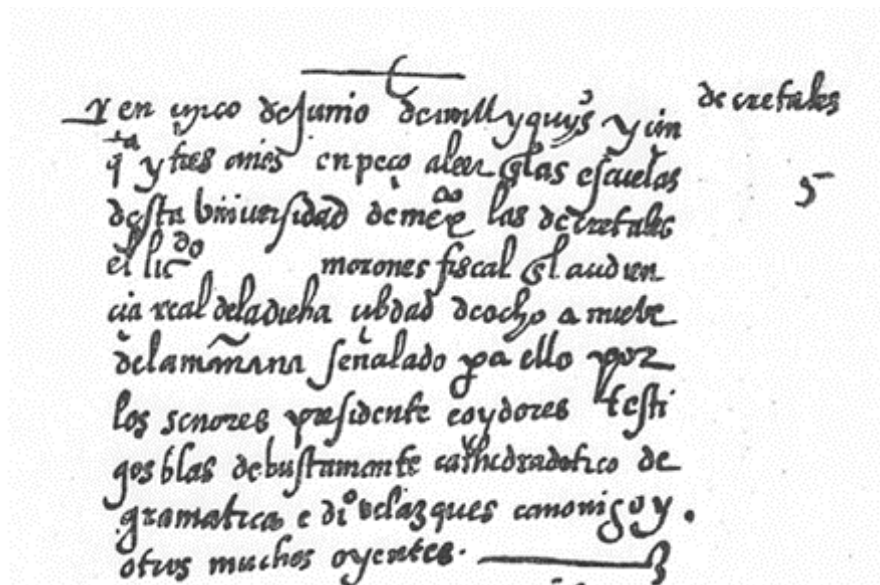 decretales
y en cinco de junio de mill y quios y cin
qta y tres años enpeço a leer en las escuelas
desta universidad de mexco las decretales
el licdo morones fiscal del audien
cia real de la dicha cibdad de ocho a nueve
de la mañana señalado pa ello por
los senores presidente e oydores testi
gos blas de bustamante cathedratico de
gramatica e dio velazques canonigo y
otros muchos oyentes.
5